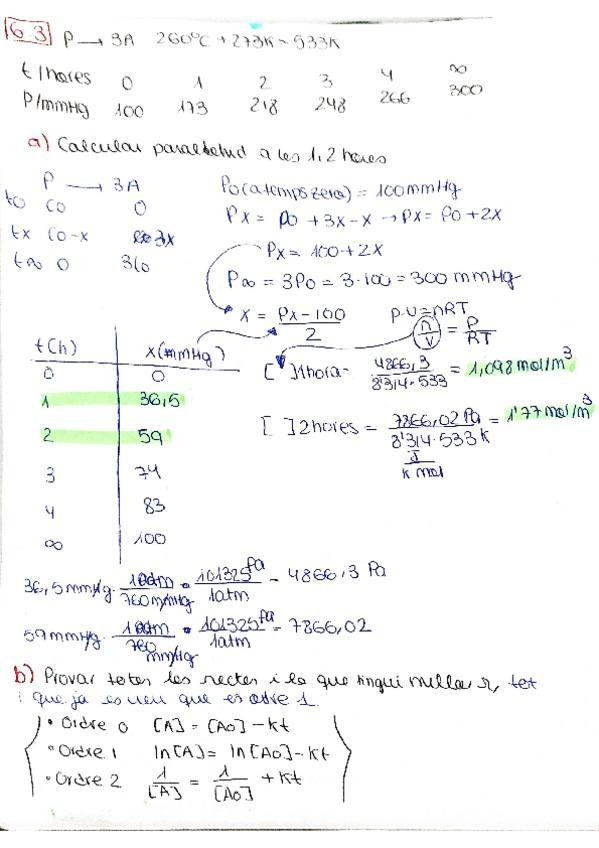 6.3 P → 3A 260ºC + 273K = 533K
t/hores 0 1 2 3 4 ∞
P/mmHg 100 173 218 248 266 300
a) Calcular a les 1, 2 hores
P → 3A
t0 C0 0
tx C0-x 3x
t∞ 0 3C0
P0 (a temps zero) = 100 mmHg
Px = P0 + 3x - x → Px = P0 + 2x
Px = 100 + 2x
P∞ = 3P0 = 3·100 = 300 mmHg
x = Px - 100 / 2
P·V = nRT
n/V = P/RT
t(h) x(mmHg)
0 0
1 36,5
2 59
3 74
4 83
∞ 100
[ ] 1 hora = 4866,3 / 8'314·533 = 1,098 mol/m³
[ ] 2 hores = 7866,02 Pa / 8'314·533 K = 1'77 mol/m³
J / K mol
36,5 mmHg · 1 atm / 760 mmHg · 101325 Pa / 1 atm = 4866,3 Pa
59 mmHg · 1 atm / 760 mmHg · 101325 Pa / 1 atm = 7866,02
b) Provar totes les rectes i la que tingui millor r,
i que ja es veu que es odre 1.
• Ordre 0 [A] = [A0] - Kt
• Ordre 1 ln[A] = ln[A0] - Kt
• Ordre 2 1/[A] = 1/[A0] + Kt